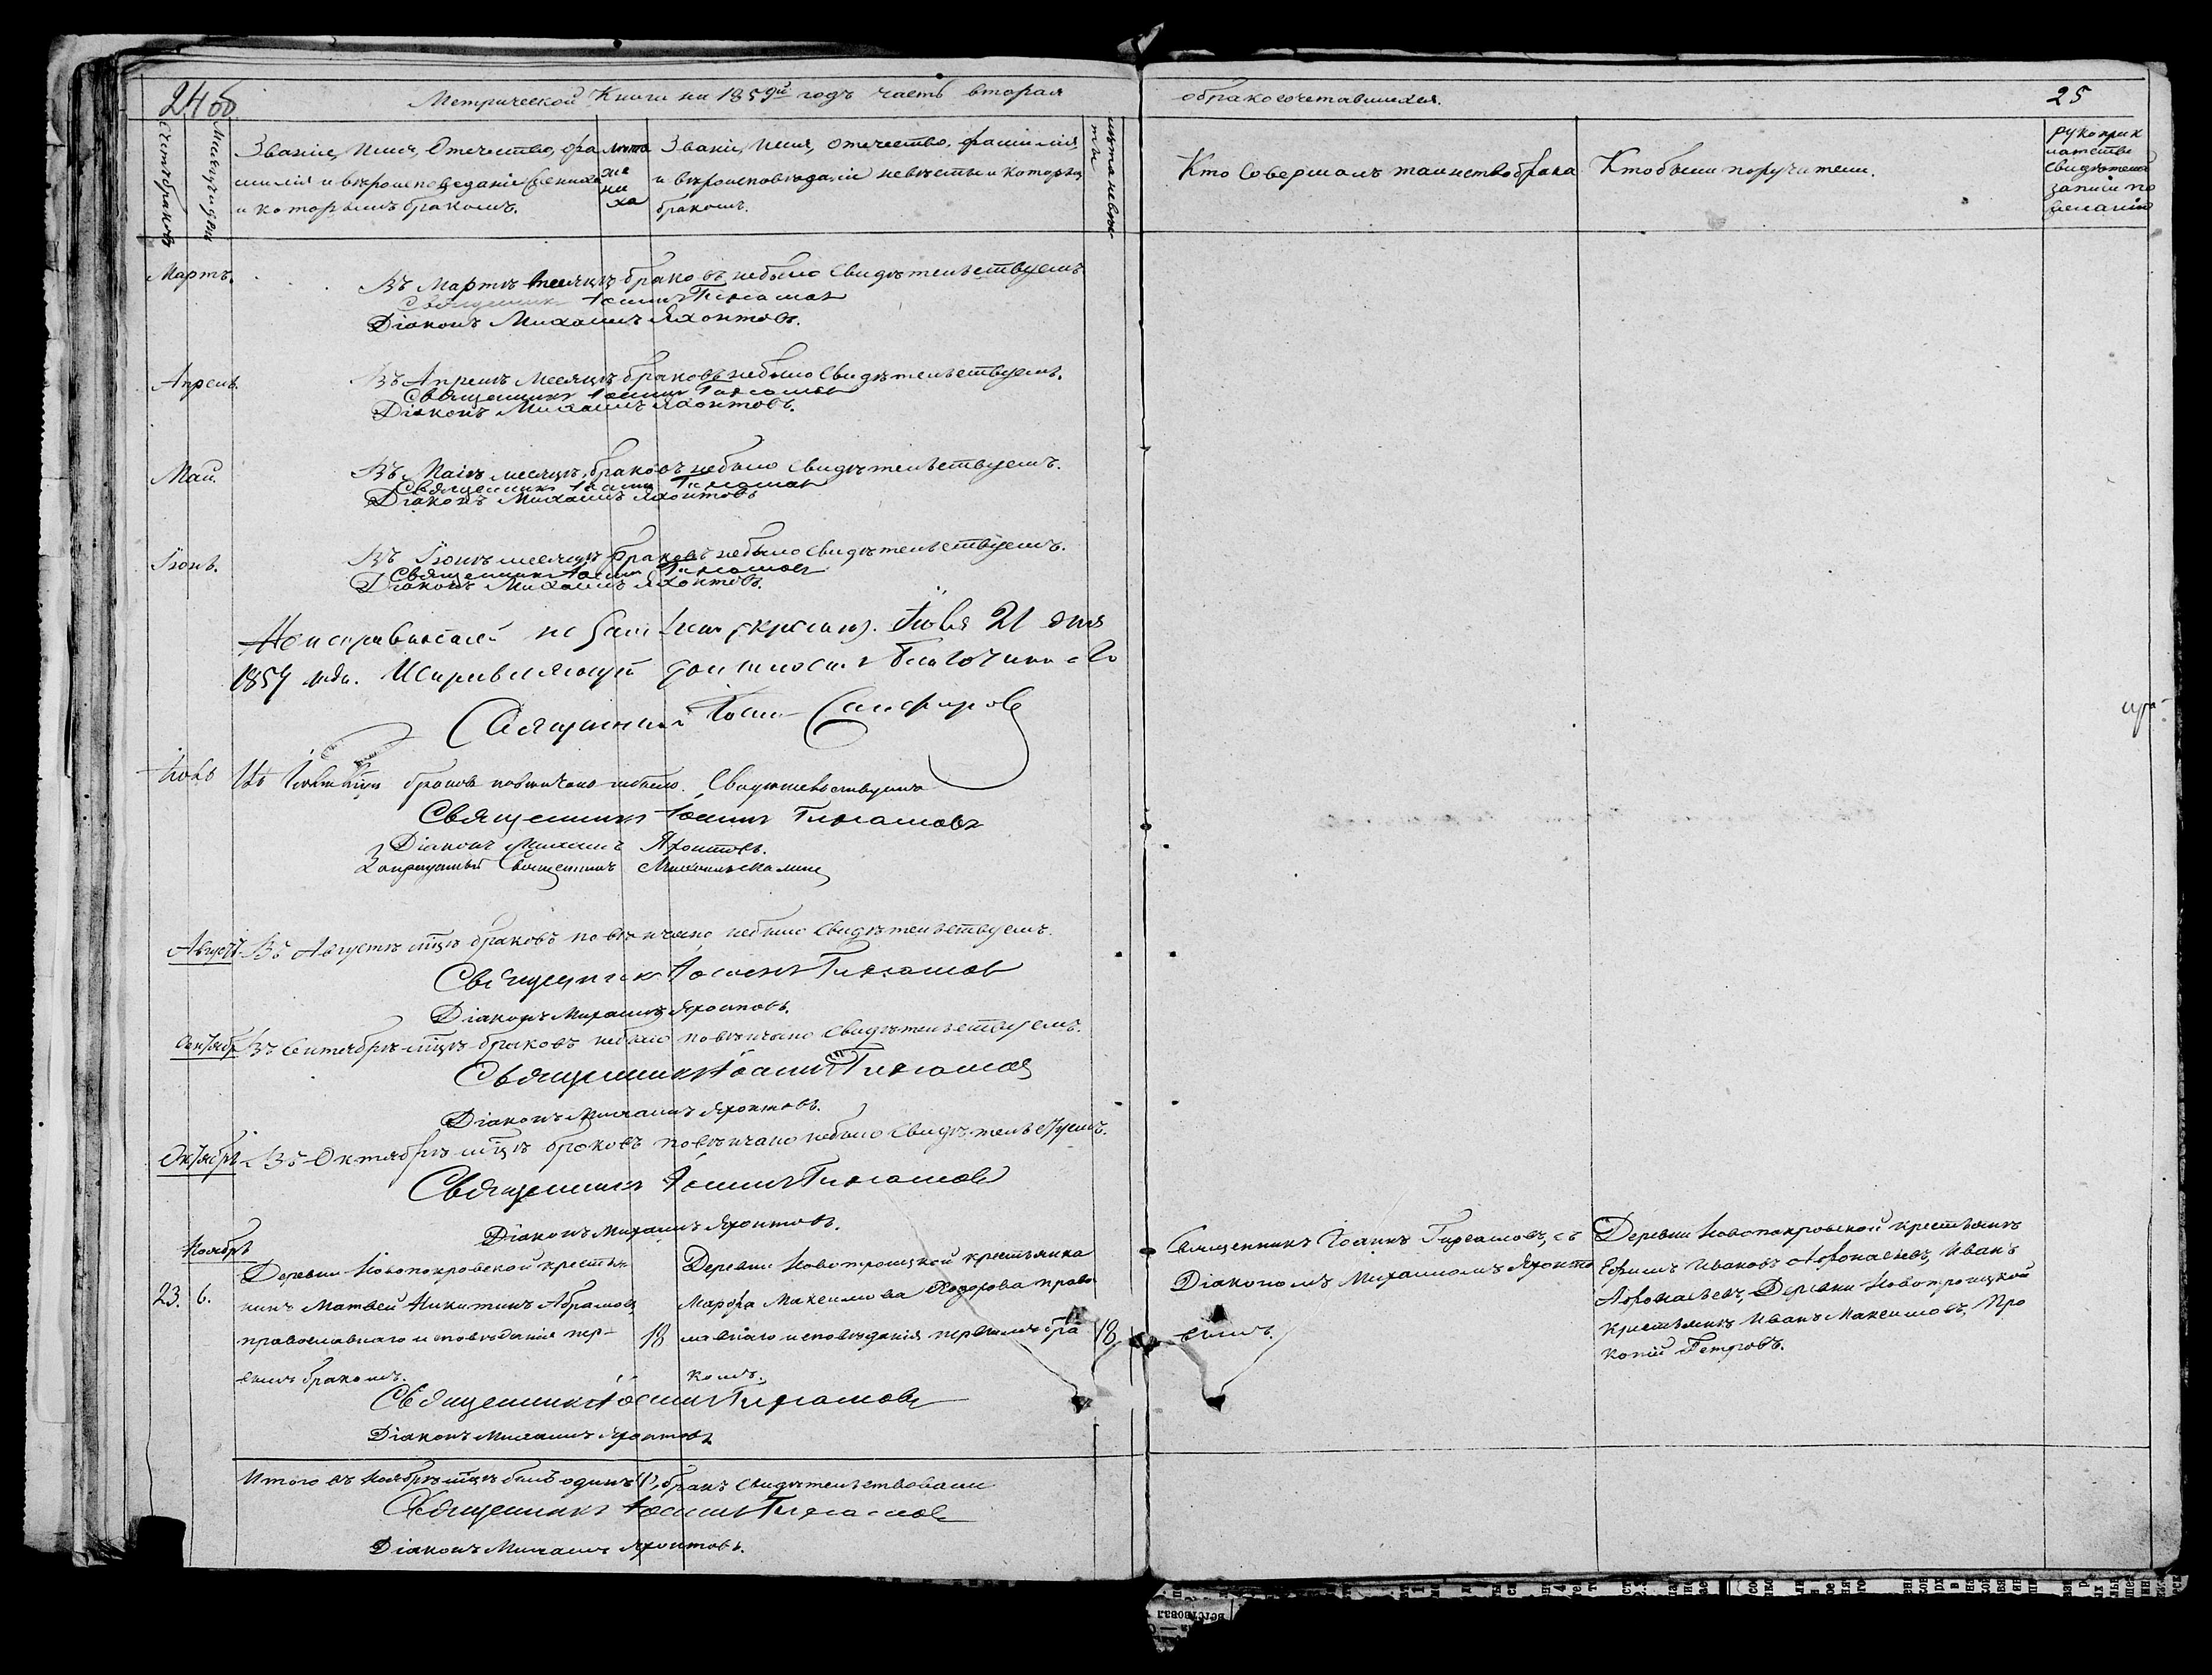 24 об
Метрической Книги на 1859й годъ часть вторая
о бракосочетавшихся.
25
Счетъ браковъ
Мѣсяцъ и день
Званіе, имя, Отечество, фа
милія и вѣроисповеданіе жениха
и которымъ бракомъ.
Лѣта
же
ни
ха
Званіе, имя, отечество, фамилія,
и вѣроисповѣданіе невѣсты и которымъ
бракомъ.
лѣта невѣс
ты
Кто Совершалъ таинство брака
Кто были поручители.
рукоприк
латство
свидѣтелей
записи по
желанію
Мартъ.
Въ Мартѣ месяцѣ браковъ небыло Свидѣтельствуемъ
Священникъ Іоаннъ
Діаконъ Михаилъ Яхонтовъ.
Апрель.
Въ Апрелѣ месяцѣ браковъ небыло Свидѣтельствуемъ.
Священникъ Іоаннъ
Діаконъ Михаилъ Яхонтовъ.
Май.
Въ Маіѣ месяцѣ браковъ небыло Свидѣтельствуемъ.
Священникъ Іоаннъ
Діаконъ Михаилъ Яхонтовъ
Іюнь.
Въ Іюнѣ месяцѣ браковъ небыло Свидѣтельствуемъ.
Священникъ Іоаннъ
Діаконъ Михаилъ Яхонтовъ.
21 дня
1859 года. Исправляющій должность Благочиннаго
Священникъ Іоаннъ Сапфировъ
Іюль
браковъ повѣнчано небыло. Свидѣтельствуемъ
Священникъ Іоаннъ
Діаконъ Михаилъ Яхонтовъ.
Запрещенный Священникъ Михаилъ
Августъ
Въ Августѣ мцѣ браковъ повѣнчано небыло Свидѣтельствуемъ.
Священникъ Іоаннъ
Діаконъ Михаилъ Яхонтовъ.
Сентябрь
Въ Сентябрѣ мцѣ браковъ небыло повѣнчано Свидѣтельствуемъ.
Священникъ Іоаннъ
Діаконъ Михаилъ Яхонтовъ.
Октябрь
Въ Октябрѣ мцѣ браковъ повѣнчано небыло Свидѣтельствуемъ.
Священникъ Іоаннъ
Діаконъ Михаилъ Яхонтовъ.
Ноябрь
23. 6.
Деревни Новопокровской крестья
нинъ Матвей Никитинъ Абрамовъ
православнаго исповѣданія пер-
вымъ бракомъ.
18
Деревни Новотроицкой крестьянка
Марфа Максимова Ѳедорова право
славнаго исповѣданія первымъ бра
комъ.
18
Священникъ Іоаннъ съ
Діакономъ Михаиломъ Яхонто
вымъ.
Деревни Новопокровской крестьянинъ
Ефимъ Ивановъ Аѳонасьевъ, Иванъ
Аѳонасьевъ, Деревни Новотроицкой
крестьянинъ Иванъ Максимовъ, Про
копій Петровъ.
Священникъ Іоаннъ
Діаконъ Михаилъ Яхонтовъ
Итого въ Ноябрѣ мцѣ былъ одинъ (1) бракъ Свидѣтельствовали
Священникъ Іоаннъ
Діаконъ Михаилъ Яхонтовъ.